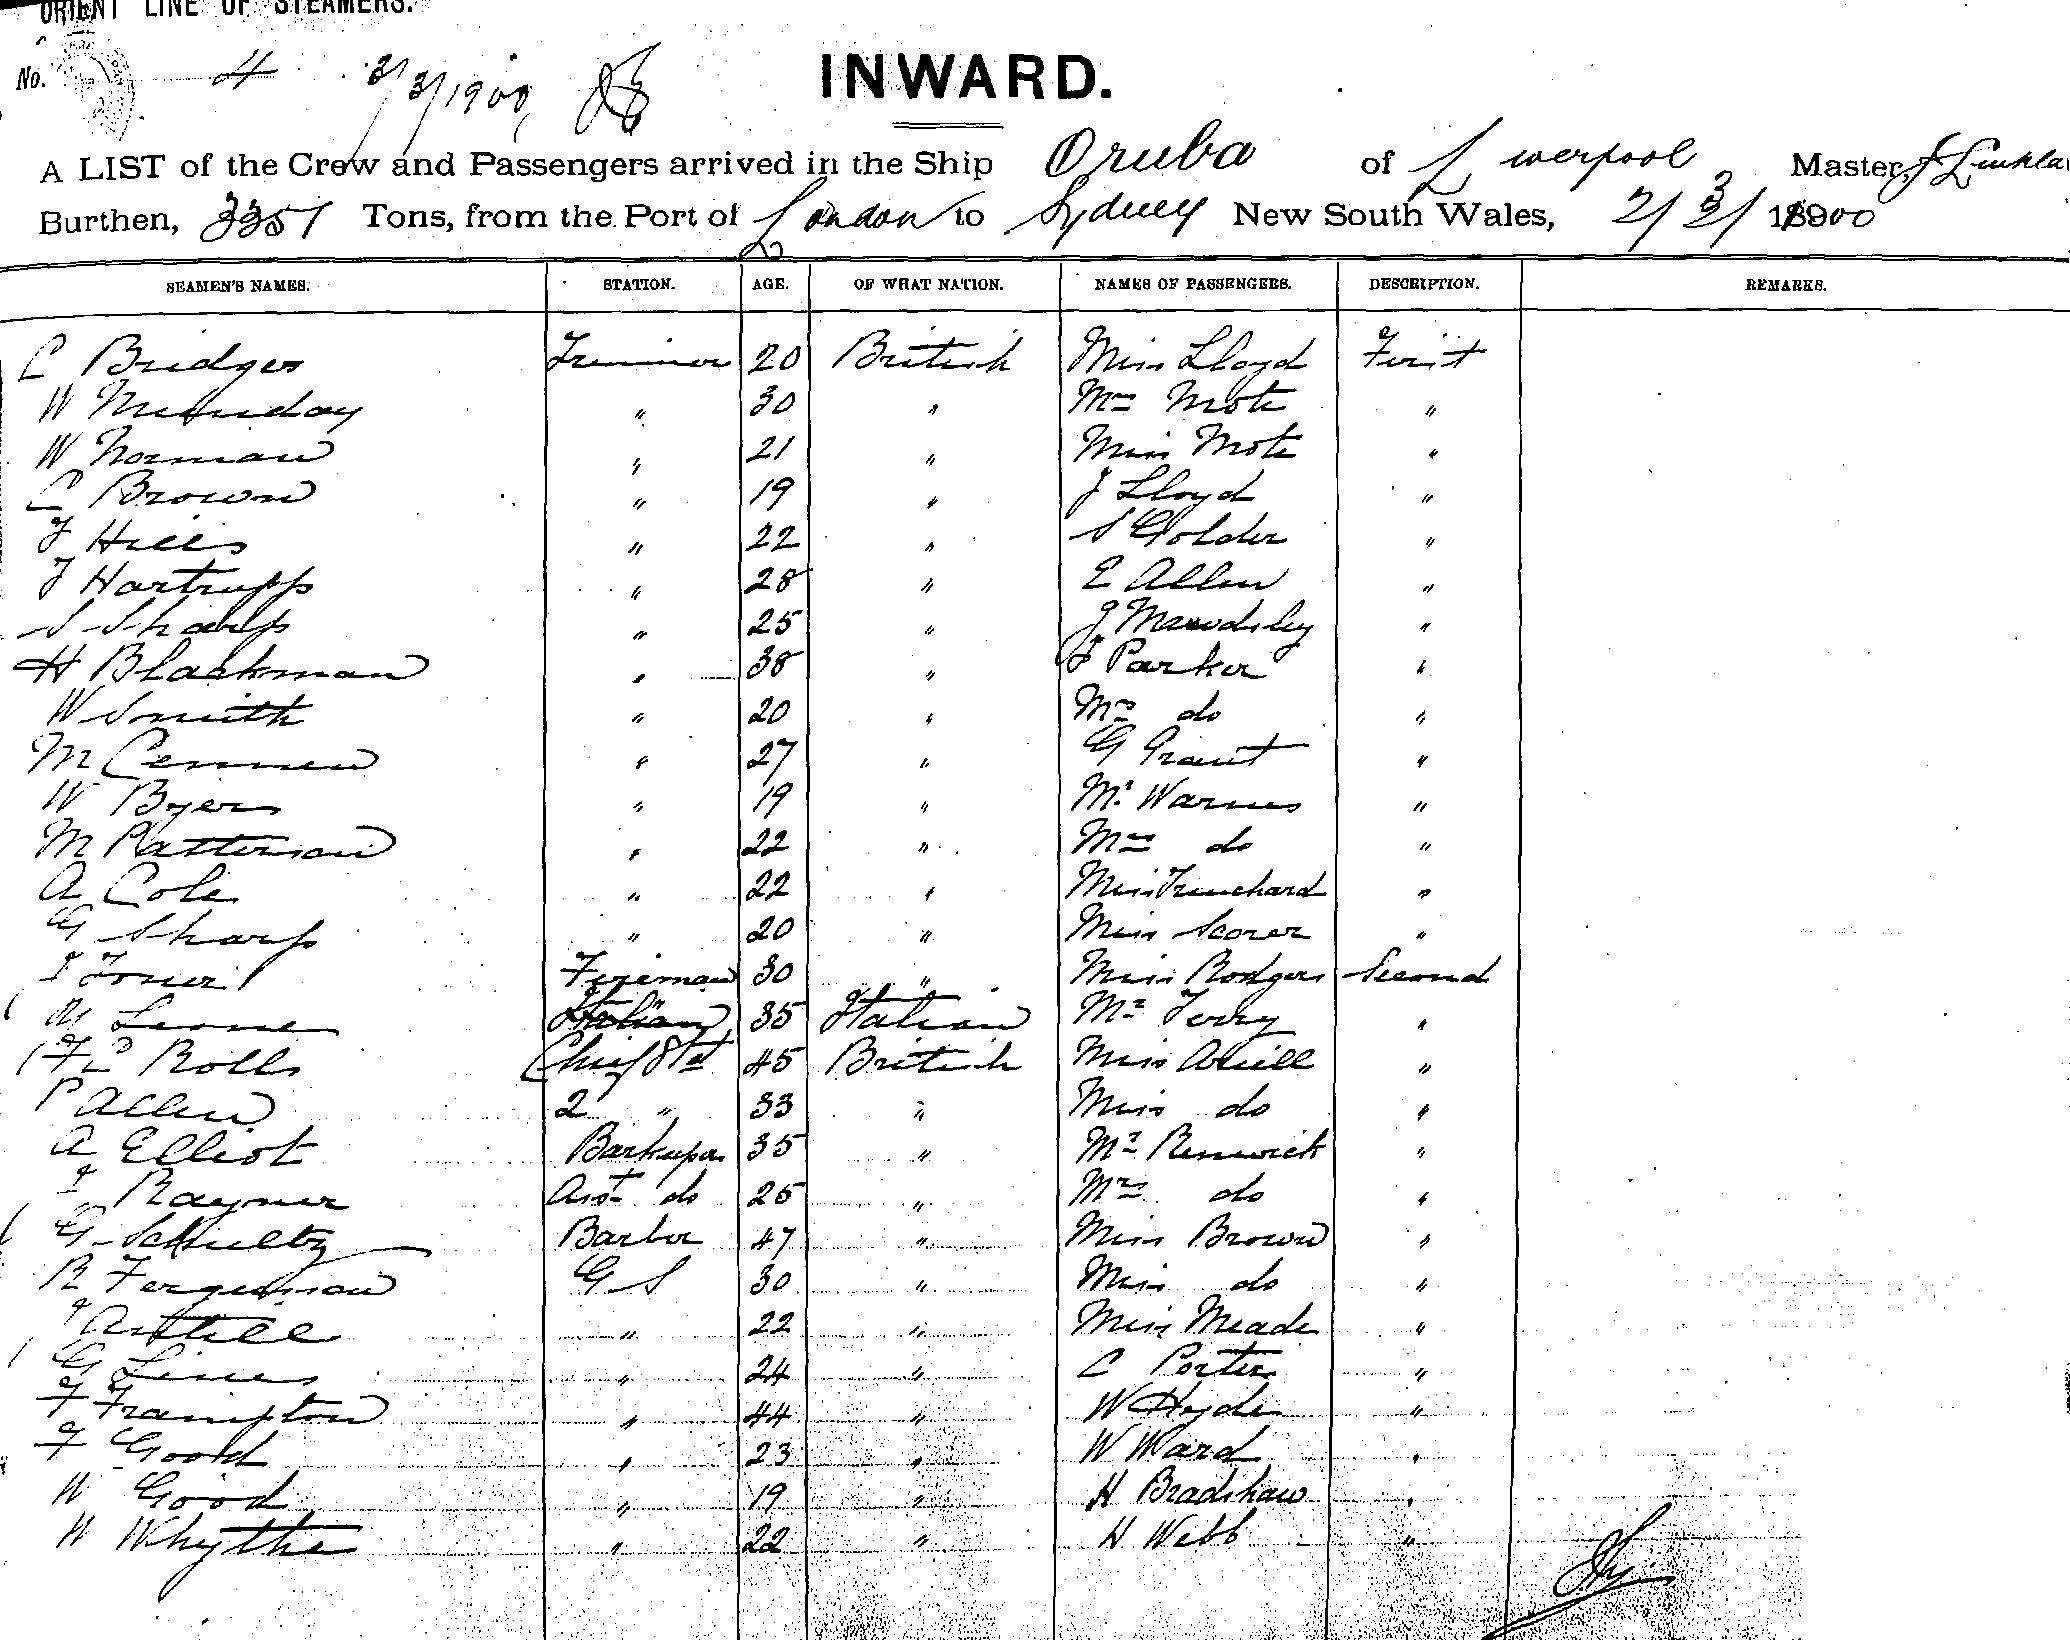 ORIENT LINE OF STEAMERS.
No. 4 3/3/1900
INWARD.
A LIST of the Crew and Passengers arrived in the Ship Oruba of Liverpool Master, J
Burthen, 3351 Tons, from the Port of London to Sydney New South Wales, 2/3/1900
SEAMEN'S NAMES. STATION. AGE. OF WHAT NATION. NAMES OF PASSENGERS. DESCRIPTION. REMARKS.
C Bridger Trimmer 20 British Miss Lloyd First
W Munday " 30 " Mrs Mote "
W Norman " 21 " Miss Mote "
C Brown " 19 " J Lloyd "
F Hills " 22 " S Golder "
F Hartrupp " 28 " E Allen "
S Sharp " 25 " J Mawdsley "
H Blackman " 38 " F Parker "
W Smith " 20 " Mrs do "
M " 27 " G Grant "
W Byers " 19 " Mr Warnes "
M Patterson " 22 " Mrs do "
A Cole " 22 " Miss Trenchard "
G Sharp " 20 " Miss Scorer "
Fireman 30 " Miss Rodgers Second
Leone 35 Italian Mr Terry "
Rolls Chief Std 45 British Miss "
P Allen 2 " 33 " Miss do "
A Elliot Barkeeper 35 " Mr Renwick "
Rayner Asst do 25 " Mrs do "
G Schultz Barber 47 " Miss Brown "
R Fergusson G S 30 " Miss do "
" 22 " Miss Meade "
G Lines " 24 " C Porter "
F Frampton " 44 " W Hyde "
F Goold " 23 " W Ward "
W Good " 19 " H Bradshaw "
W Whythe " 22 " H Webb "